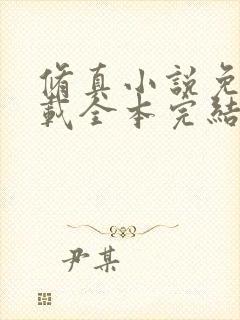 脩真小說免
載全本完結
尹某